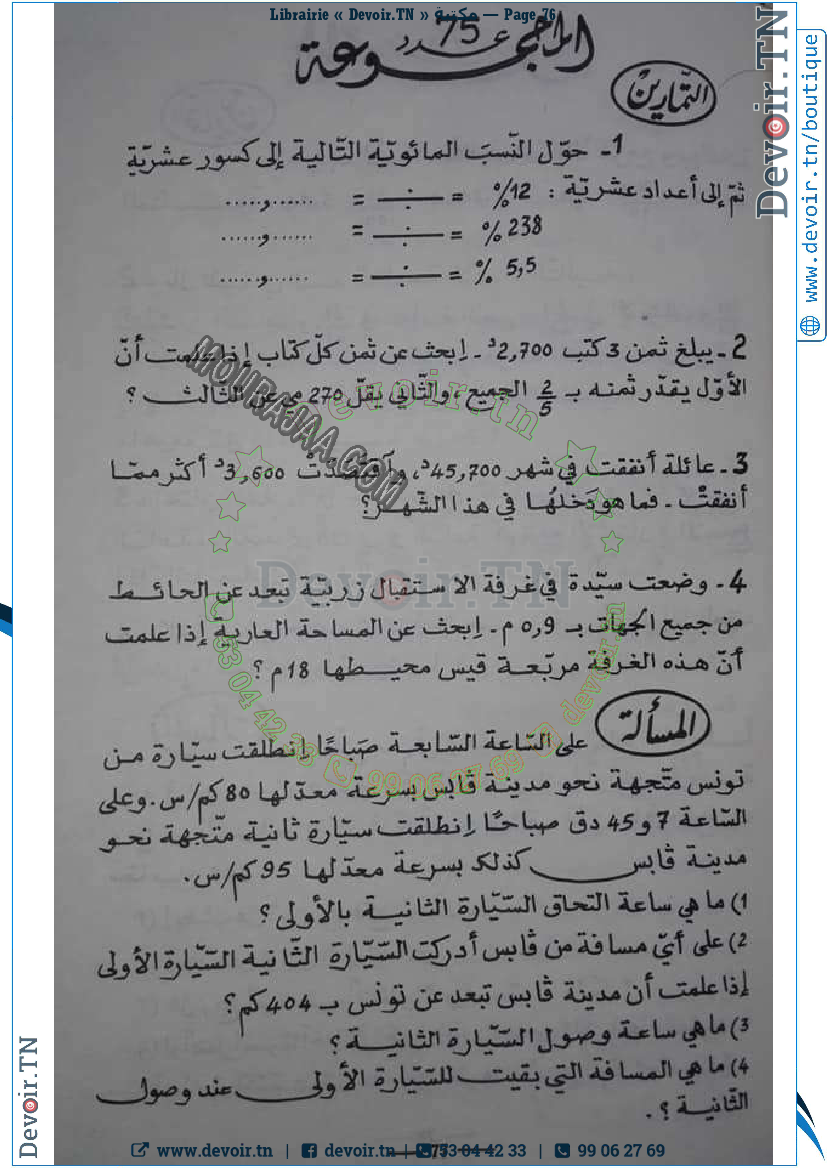 Librairie « Devoir.TN » مكتبة — Page 76
المجموعة عدد 75
التمارين
1- حوّل النّسب المائويّة التّالية إلى كسور عشريّة
ثمّ إلى أعداد عشريّة : 12% = ــــ = ......,......
238 % = ــــ = ......,......
5,5 % = ــــ = ......,......
2- يبلغ ثمن 3 كتب 2,700د. إبحث عن ثمن كلّ كتاب إذا علمت أنّ
الأوّل يقدّر ثمنه بـ 2/5 الجميع، والثّاني يقلّ 270 مي عن الثّالث ؟
3- عائلة أنفقت في شهر 45,700د، وآقتصدت 3,600د أكثر ممّا
أنفقت. فما هو دخلها في هذا الشّهر؟
4- وضعت سيّدة في غرفة الاستقبال زربيّة تبعد عن الحائط
من جميع الجهات بـ 0,9م. إبحث عن المساحة العارية إذا علمت
أنّ هذه الغرفة مربّعة قيس محيطها 18م ؟
المسألة
على السّاعة السّابعة صباحًا إنطلقت سيّارة من
تونس متّجهة نحو مدينة ڨابس بسرعة معدّلها 80كم/س. وعلى
السّاعة 7 و45 دق صباحًا إنطلقت سيّارة ثانية متّجهة نحو
مدينة ڨابس كذلك بسرعة معدّلها 95كم/س.
1) ما هي ساعة التحاق السّيّارة الثانية بالأولى ؟
2) على أيّ مسافة من ڨابس أدركت السّيّارة الثّانية السّيّارة الأولى
إذا علمت أن مدينة ڨابس تبعد عن تونس بـ 404كم ؟
3) ما هي ساعة وصول السّيّارة الثانية ؟
4) ما هي المسافة التي بقيت للسّيّارة الأولى عند وصول
الثّانية ؟.
MOURAJAA.COM
devoir.tn
Devoir.TN
53 04 42 33
99 06 27 69
devoir.tn
Devoir.TN
www.devoir.tn/boutique
Devoir.TN
www.devoir.tn | devoir.tn | 53 04 42 33 | 99 06 27 69